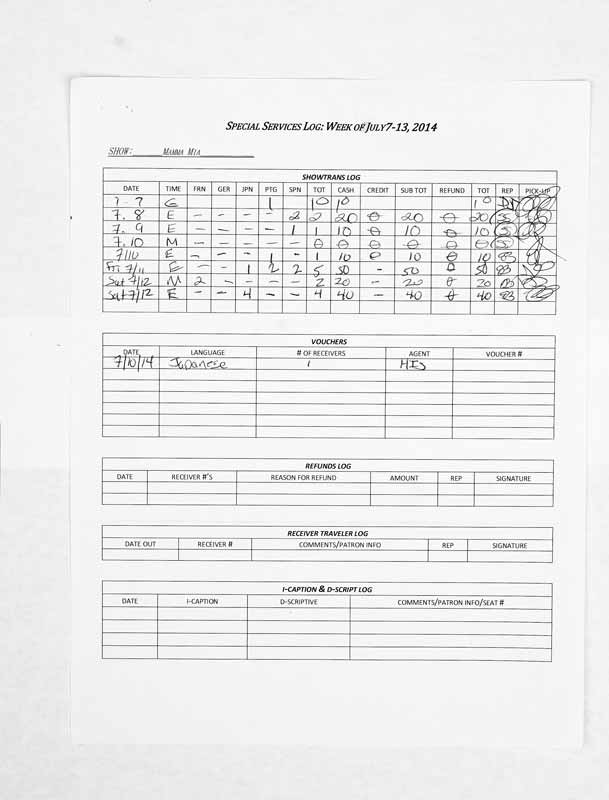 SPECIAL SERVICES LOG: WEEK OF JULY7-13, 2014
SHOW: MAMMA MIA
SHOWTRANS LOG
DATE TIME FRN GER JPN PTG SPN TOT CASH CREDIT SUB TOT REFUND TOT REP PICK-UP
7-7 E 1 10 10 10
7.8 E - - - - 2 2 20 0 20 0 20
7.9 E - - - - 1 1 10 0 10 0 10
7.10 M - - - - - 0 0 0 0 0 0
7/10 E - - - 1 - 1 10 0 10 0 10 83
Fri 7/11 E - - 1 2 2 5 50 - 50 0 50 83
Sat 7/12 M 2 - - - - 2 20 - 20 0 20
Sat 7/12 E - - 4 - - 4 40 - 40 0 40 83
VOUCHERS
DATE LANGUAGE # OF RECEIVERS AGENT VOUCHER #
7/10/14 Japanese 1 HIS
REFUNDS LOG
DATE RECEIVER #'S REASON FOR REFUND AMOUNT REP SIGNATURE
RECEIVER TRAVELER LOG
DATE OUT RECEIVER # COMMENTS/PATRON INFO REP SIGNATURE
I-CAPTION & D-SCRIPT LOG
DATE I-CAPTION D-SCRIPTIVE COMMENTS/PATRON INFO/SEAT #